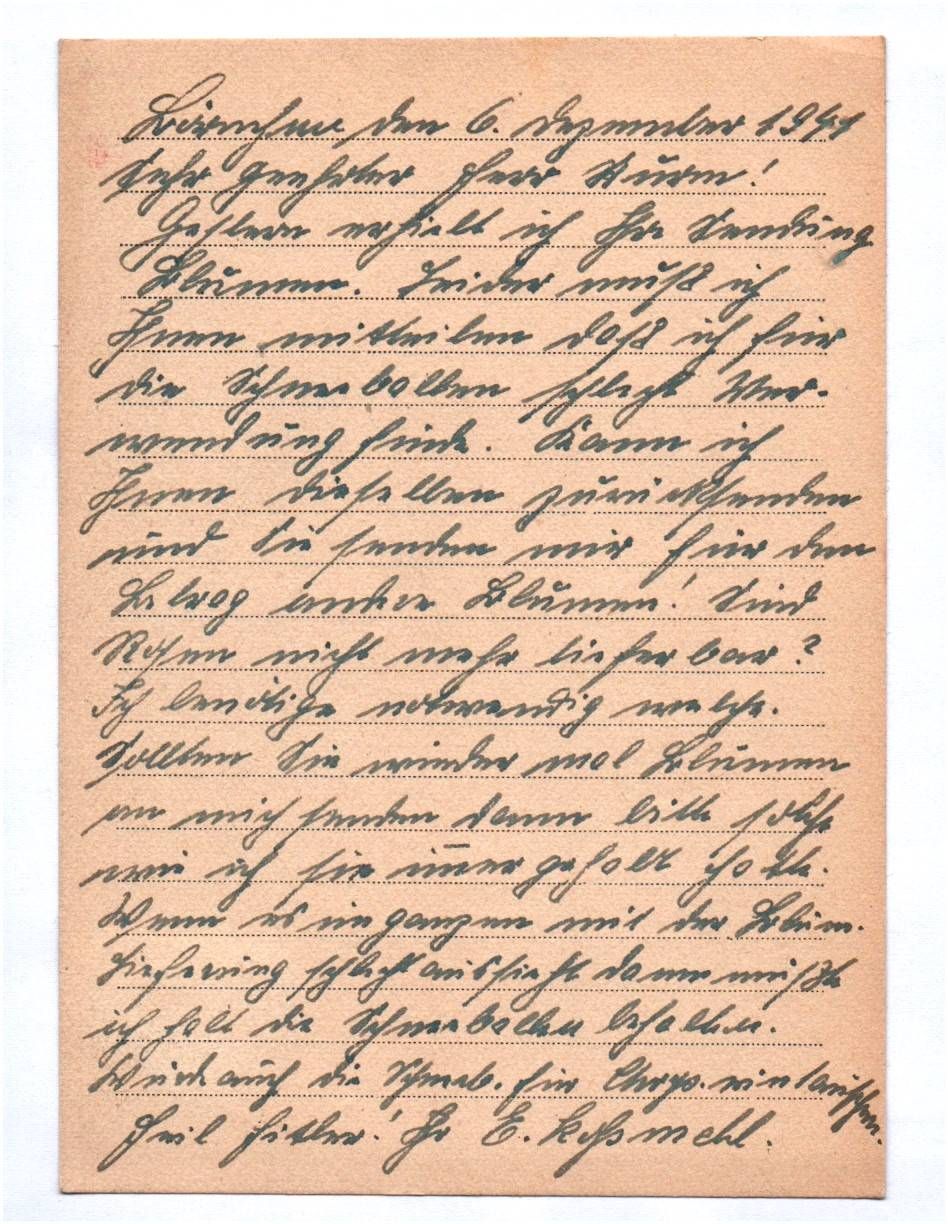 Bärnchen den 6. Dezember 1941
Sehr geehrter Herr Sturm!
Gestern erhielt ich Ihre Sendung
Blumen. Leider muß ich
Ihnen mitteilen daß ich für
die Schneeballen schlecht Ver-
wendung finde. Kann ich
Ihnen dieselben zurücksenden
und Sie senden mir für den
Betrag andere Blumen! Sind
Rosen nicht mehr lieferbar?
Ich benötige notwendig welche.
Sollten Sie wieder mal Blumen
an mich senden dann bitte solche
wie ich sie im̅er geholt hatte.
Wenn es im ganzen mit der Blum.
Lieferung schlecht aussieht dann müßte
ich halt die Schneeballen behalten.
Würde auch die Schneeb. für Chrys. eintauschen.
Heil Hitler! Ihr E.